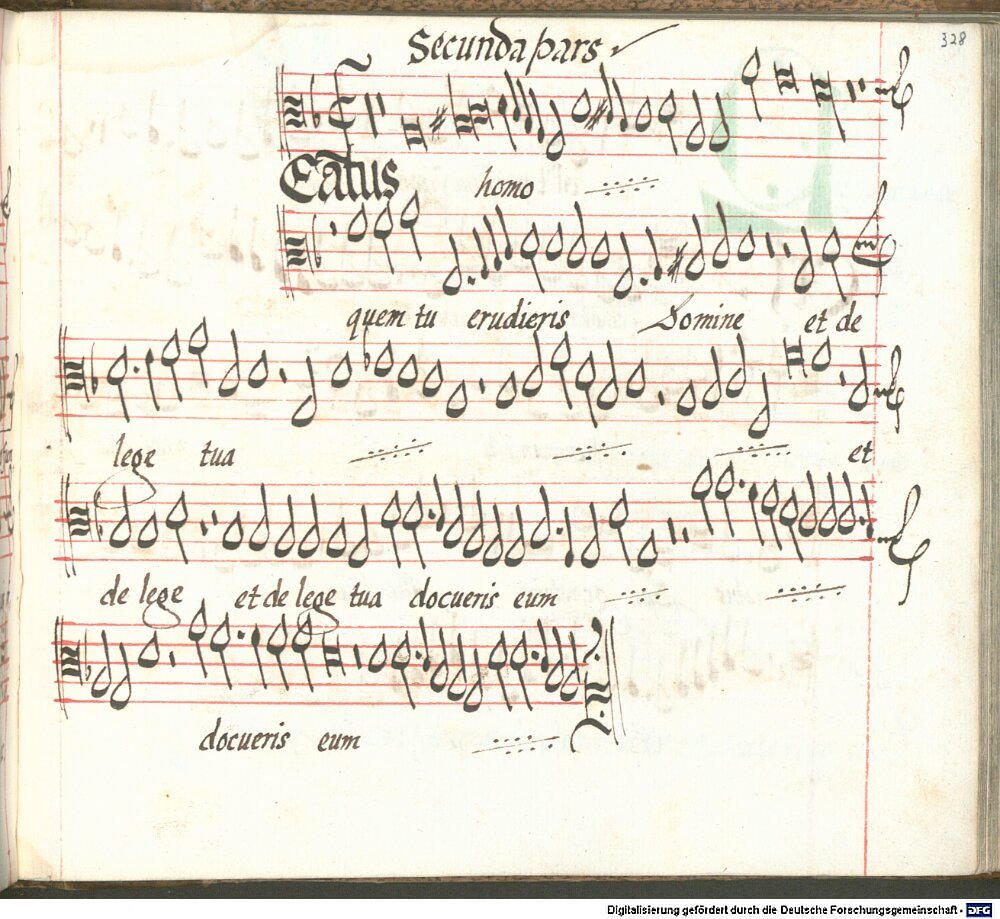 328
Secunda pars
Eatus homo
quem tu erudieris Domine et de
lege tua et
de lege et de lege tua docueris eum
docueris eum
Digitalisierung gefördert durch die Deutsche Forschungsgemeinschaft - DFG